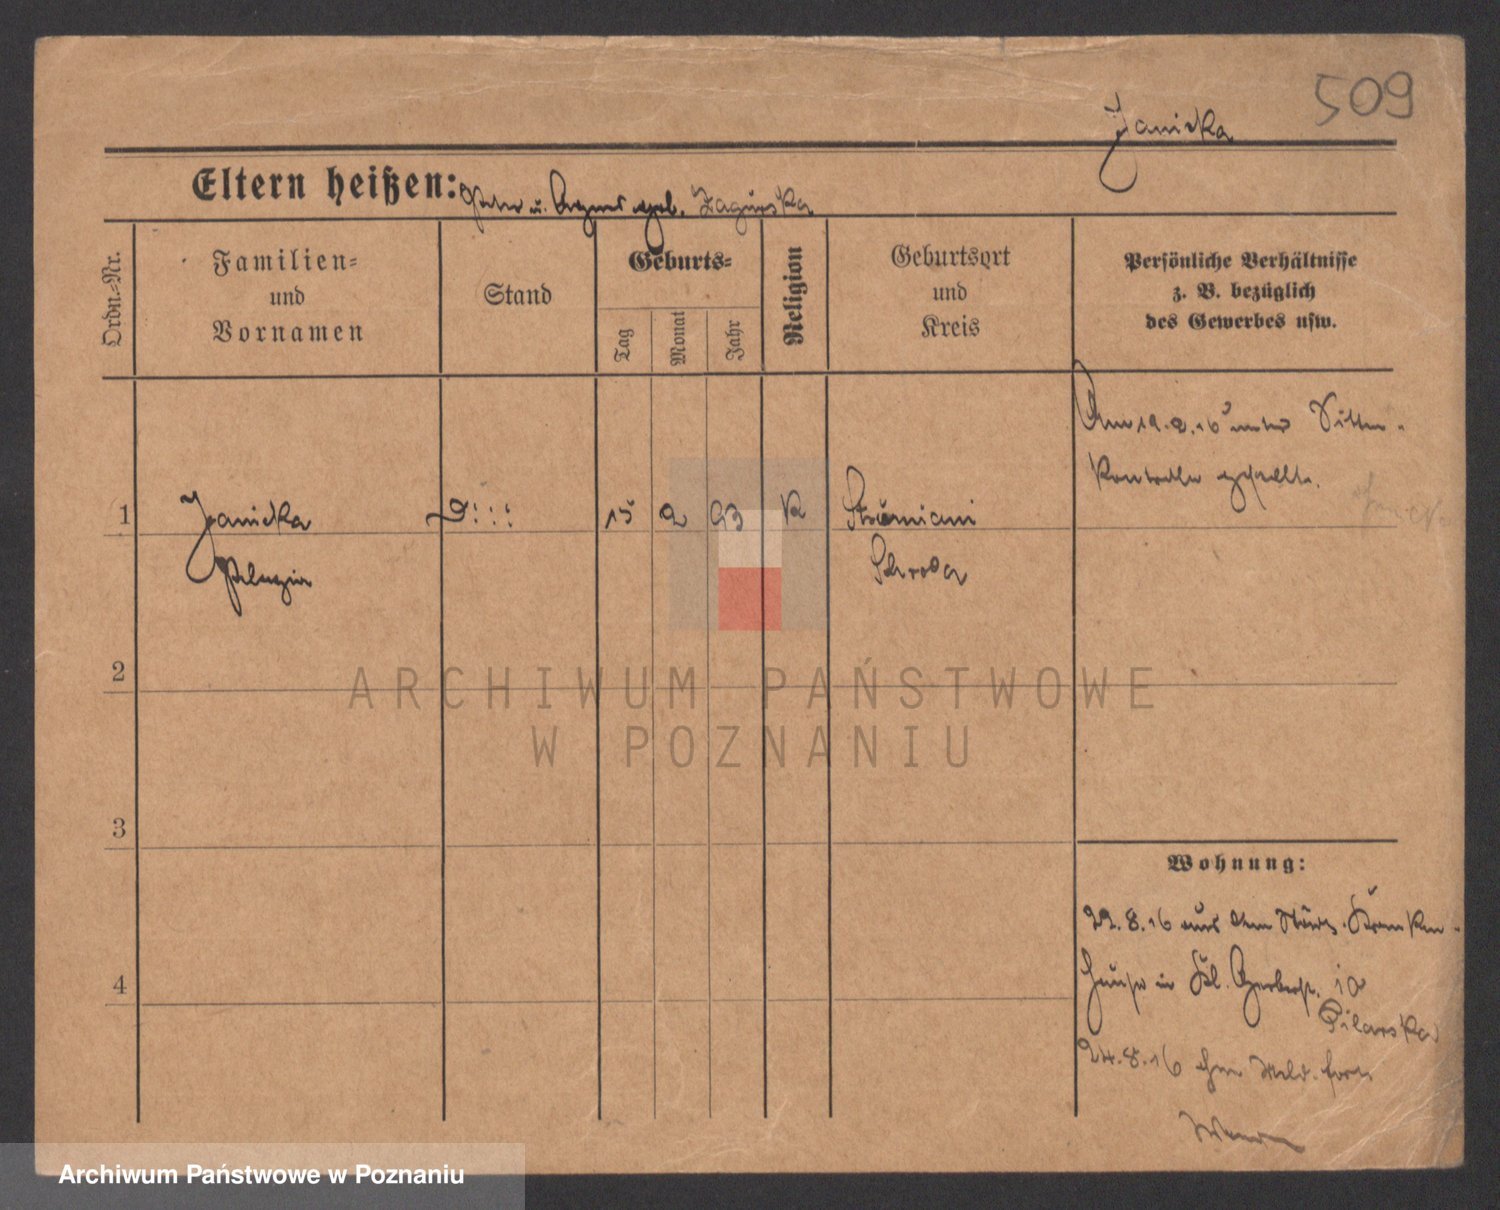 509
Janicka
Eltern heißen: Peter u. Agnes geb. Zagurska
Ordn.=Nr.
Familien=
und
Vornamen
Stand
Geburts=
Tag
Monat
Jahr
Religion
Geburtsort
und
Kreis
Persönliche Verhältnisse
z. B. bezüglich
des Gewerbes usw.
Am 19.2.16 unter Sitten-
kontrolle gestellt.
1
Janicka
Pelagia
15 2 93 K
Schroda
2
3
4
Wohnung:
22.8.16 aus dem Städt. Kranken-
hause in Kl. Gerberstr. 10
Pilarska
24.8.16 ohne Meld. fort
ARCHIWUM PAŃSTWOWE
W POZNANIU
Archiwum Państwowe w Poznaniu